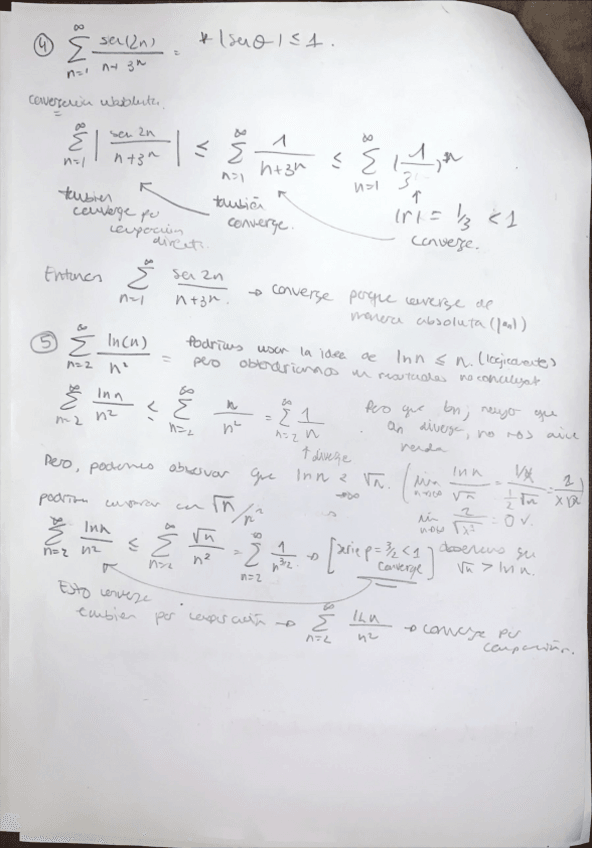 ④ ∑_{n=1}^{∞} sen(2n) / n + 3^n = * |sen θ| ≤ 1.
convergencia absoluta.
∑_{n=1}^{∞} | sen 2n / n + 3^n | ≤ ∑_{n=1}^{∞} 1 / n + 3^n ≤ ∑_{n=1}^{∞} (1/3)^n
también converge por comparación directa.
también converge.
|r| = 1/3 < 1 converge.
Entonces ∑_{n=1}^{∞} sen 2n / n + 3^n. → converge porque converge de
manera absoluta (|an|)
⑤ ∑_{n=2}^{∞} ln(n) / n² = Podríamos usar la idea de ln n ≤ n. (logicamente)
pero obtendríamos un
∑_{n=2}^{∞} ln n / n² ≤ ∑_{n=2}^{∞} n / n² = ∑_{n=2}^{∞} 1/n
↑ diverge
Pero que bn, mayor que
an diverge, no nos dice
nada.
Pero, podemos observar que ln n ≤ √n. ( lim_{n→∞} ln n / √n =
lim_{n→∞} = 0 ✓.
podríamos con √n / n²
∑_{n=2}^{∞} ln n / n² ≤ ∑_{n=2}^{∞} √n / n² = ∑_{n=2}^{∞} 1 / n^{3/2} → [serie p = 3/2 < 1 converge]
que √n > ln n.
Esto converge
también por comparación → ∑_{n=2}^{∞} ln n / n² → converge por
comparación.